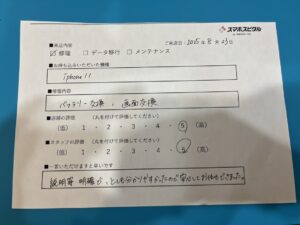 スマホスピタル
■来店内容
ご来店日：2025年8月23日
☑修理 □データ移行 □メンテナンス
■お持ち込みいただいた機種
iphone 11
■修理内容
バッテリー交換、画面交換
■店舗の評価 （丸を付けて評価してください）
（低） 1 ・ 2 ・ 3 ・ 4 ・ 5 （高）
■スタッフの評価 （丸を付けて評価してください）
（低） 1 ・ 2 ・ 3 ・ 4 ・ 5 （高）
■一言いただけますと幸いです
説明等 明確で、とても分かりやすかったので安心してお任せできました。